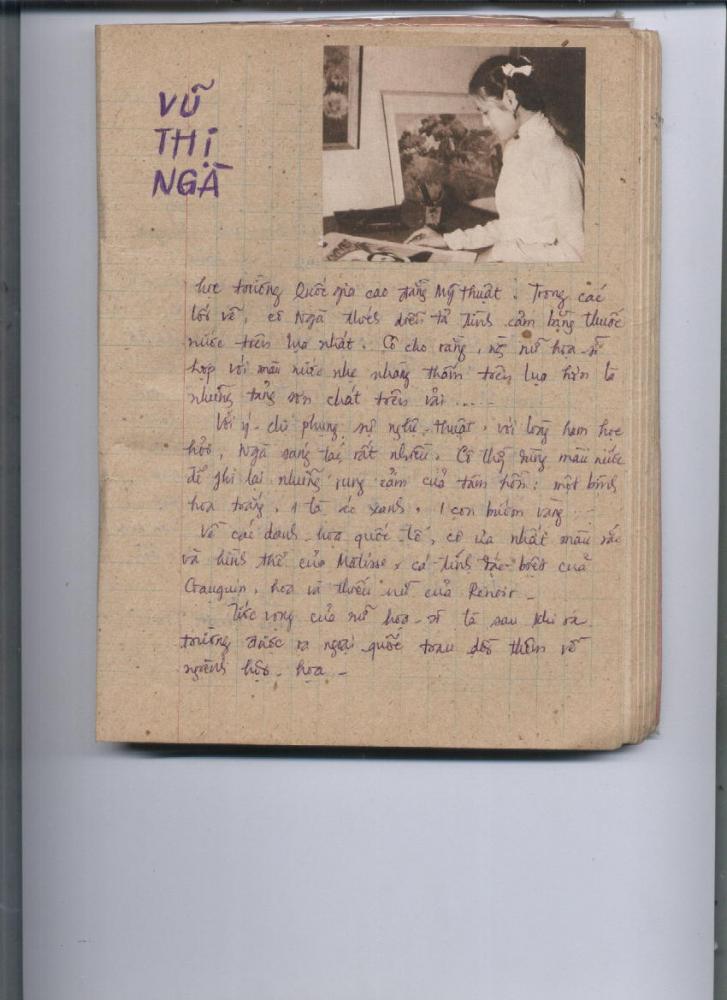 VŨ
THỊ
NGÀ
học trường Quốc gia cao đẳng Mỹ thuật. Trong các
lối vẽ, cô Ngà thích diễn tả tình cảm bằng thuốc
nước trên lụa nhất. Cô cho rằng, nữ họa-sĩ
hợp với màu nước nhẹ nhàng thấm trên lụa hơn là
những tảng sơn chát trên vải ....
Với ý-chí phụng sự nghệ-thuật, với lòng ham học
hỏi, Ngà sáng tác rất nhiều. Cô thg dùng màu nước
để ghi lại những rung cảm của tâm hồn: một bình
hoa trắng, 1 tà áo xanh, 1 con bướm vàng ...
Về các danh-họa quốc tế, cô ưa nhất màu sắc
và hình thể của Matisse, cá tính đặc-biệt của
Gauguin, hoa và thiếu nữ của Renoir -
Ước vọng của nữ họa-sĩ là sau khi ra
trường được ra ngoại quốc trau dồi thêm về
ngành hội-họa -